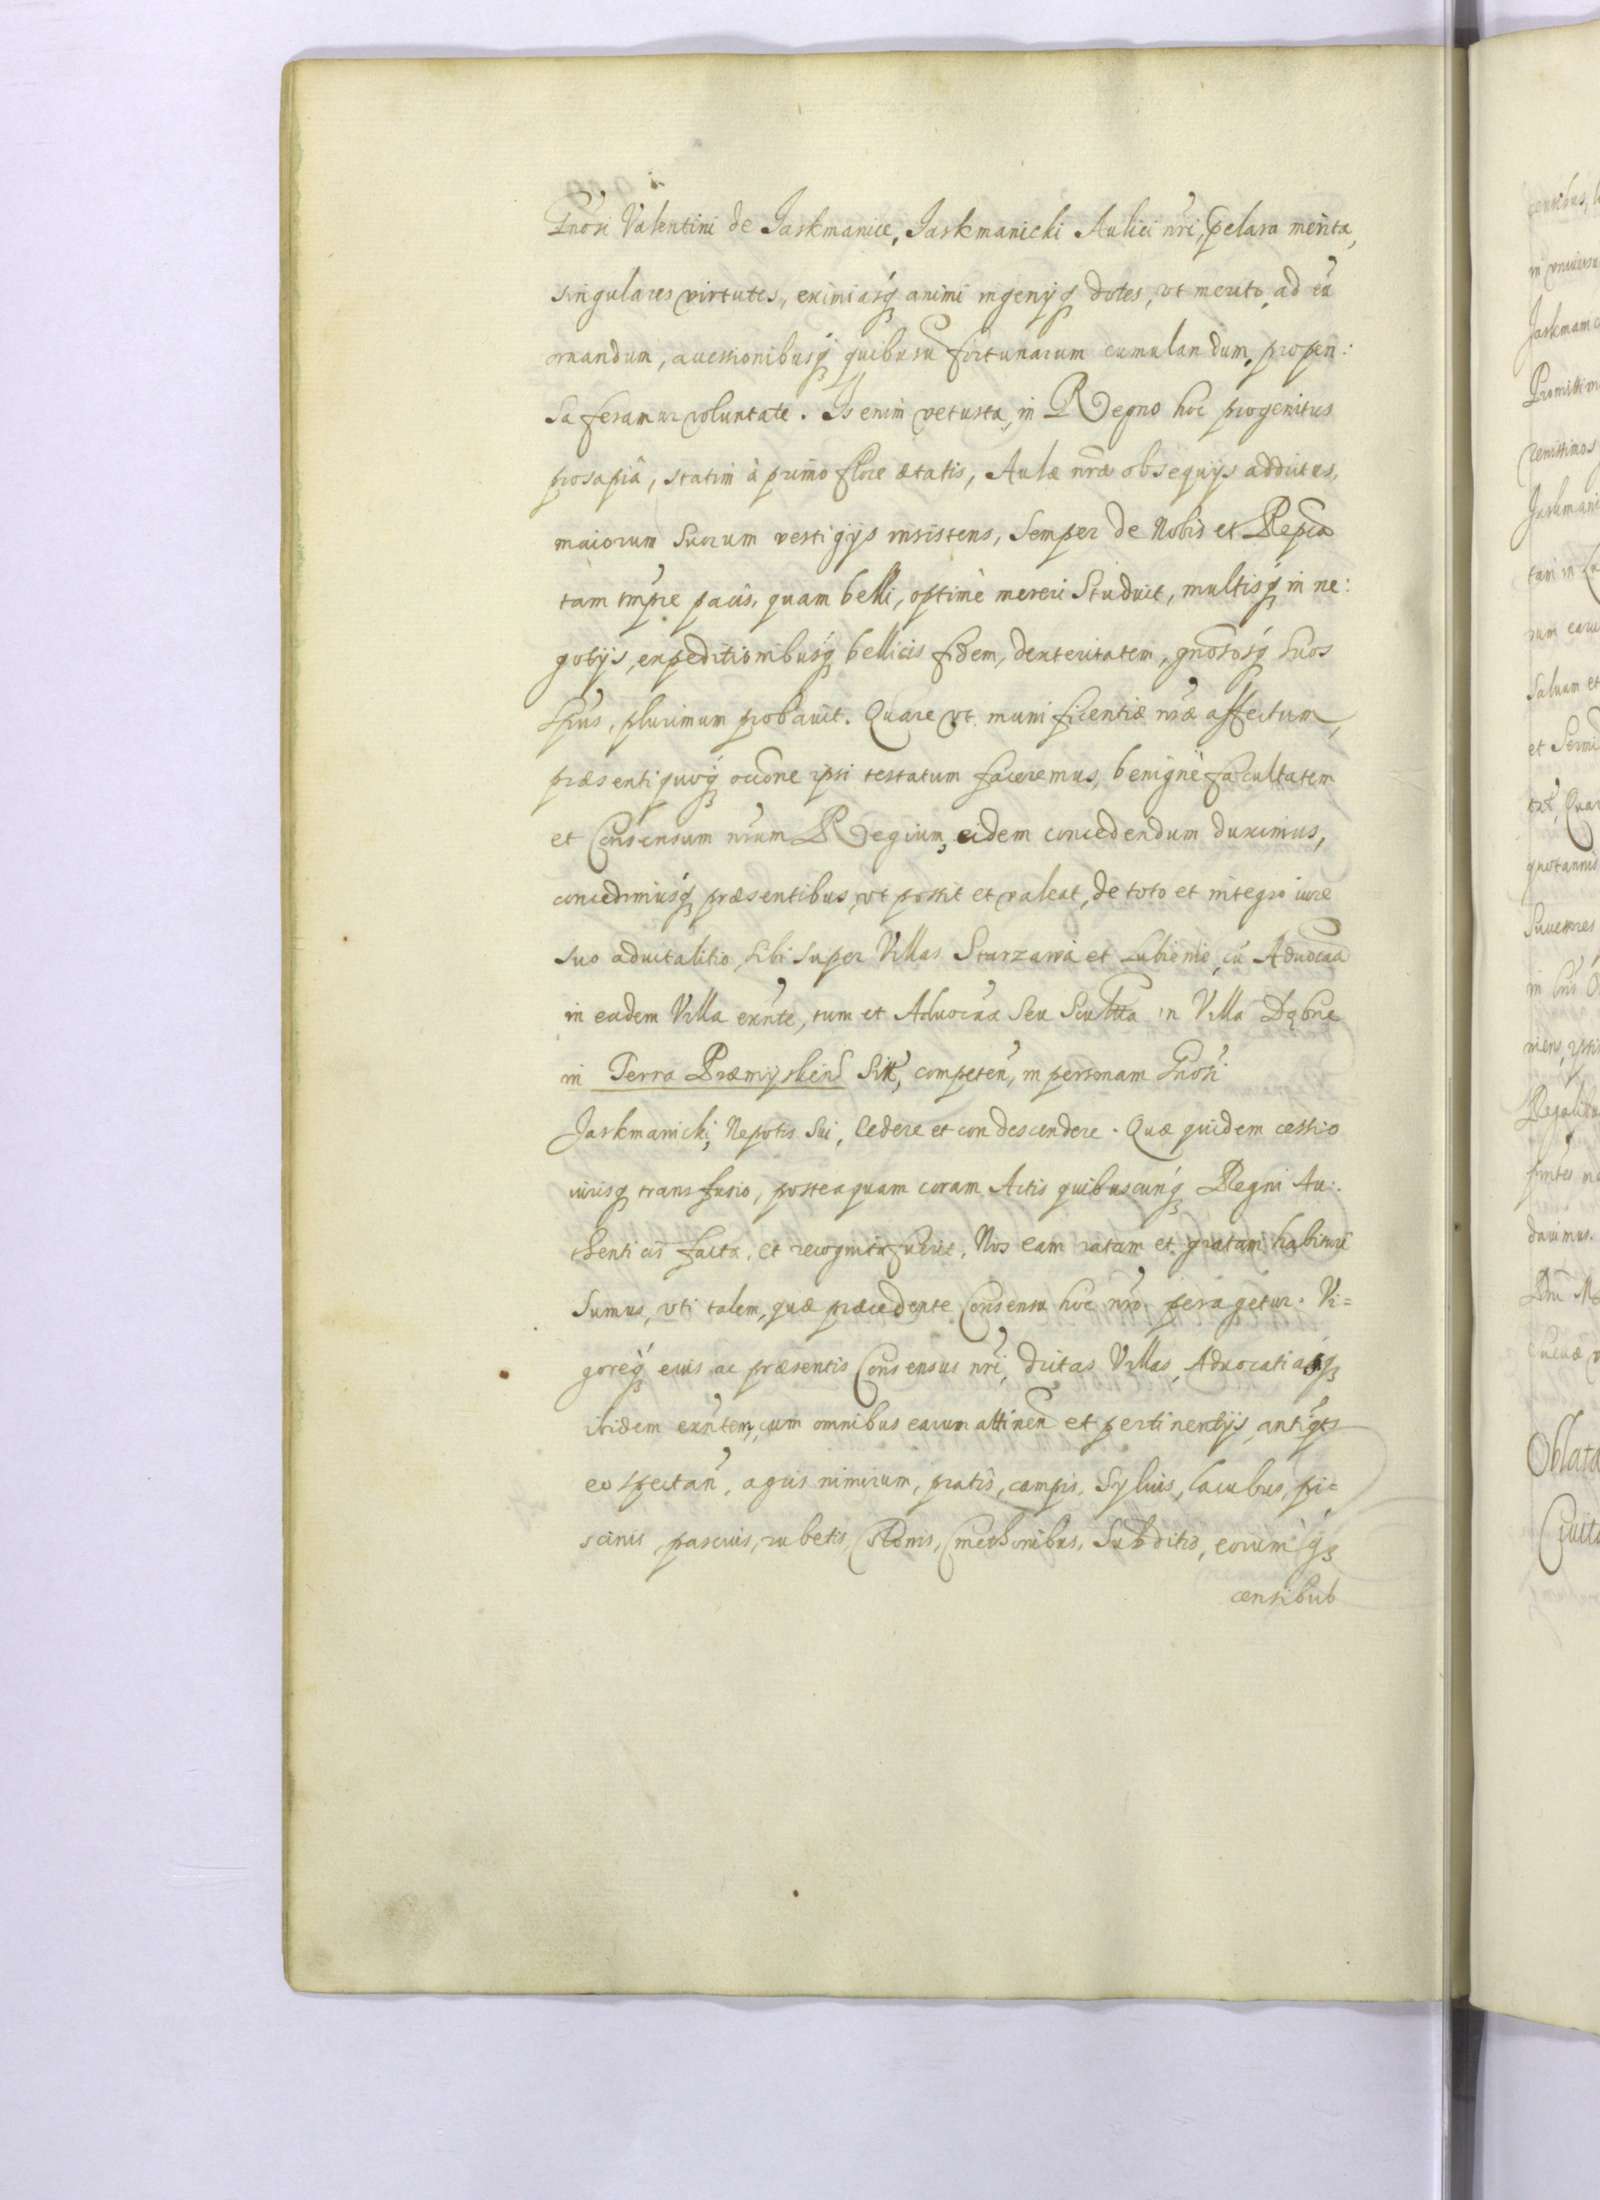 Gnosi Valentini de Jaskmanice, Jaskmanicki Aulici nri, pclara merita,
singulares virtutes, eximiasq animi ingenijq dotes, vt merito ad eũ
ornandum, accessionibusq quibusu fortunarum cumulandum, propen:
sa feramur voluntate. Is enim vetusta, in Regno hoc progenitus
prosapiâ, statim à primo flore ætatis, Aulæ nræ obsequijs addictus,
maiorum suorum vestigijs insistens, semper de Nobis et Repca
tàm tmpre pacis, quam belli, optimè mereri studuit, multisq in ne:
gotijs, expeditionibusq bellicis fidem, dexteritatem, gnososq suos
spus, plurimum probauit. Quare vt munificentiæ nræ affectum,
præsenti quoq occone ipsi testatum faceremus, benignè facultatem
et Consensum nrum Regium, eidem concedendum duximus,
concedimusq præsentibus, vt possit et valeat, de toto et integro iure
suo aduitalitio, sibi super Villas Starzawa et Lubienie, cũ Aduocaa
in eadem Villa exnte, tum et Aduocaa seu Scultta in Villa Dąbrie
in Terra Præmyslien Sitt, competen, in personam Gnosi
Jaskmanicki, Nepotis sui, cedere et condescendere. Quæ quidem cessio
iurisq transfusio, posteaquam coram Actis quibuscunq Regni Au:
thenticis facta, et recognita fuerit, Nos eam ratam et gratam habituri
sumus, vti talem, quæ præcedente Consensu hoc nro peragetur. Vi=
goreq eius ac præsentis Consensus nri, dictas Villas, Aduocatiasq
ibidem exntem, cum omnibus earum attinen et pertinentijs, antiqts
eo spectan, agris nimirum, pratis, campis, syluis, lacubus, pi=
scinis, pascuis, rubetis, Cmethonibus, Subditis, eorumq
censibus